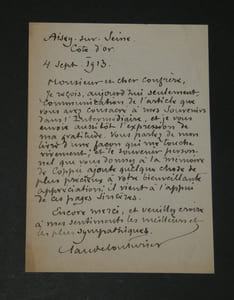 Aisey-sur-Seine
Côte d'or.
4 Sept. 1913.
Monsieur et cher Confrère,
Je reçois, aujourd'hui seulement,
communication de l'article que
vous avez consacré à mes Souvenirs
dans l'Intermédiaire, et je vous
envoie aussitôt l'expression de
ma gratitude. Vous parlez de mon
livre d'une façon qui me touche
vivement; et le souvenir person-
nel que vous donnez à la mémoire
de Coppée ajoute quelque chose de
plus précieux à votre bienveillante
appréciation; il vient à l'appui
de ces pages sincères.
Encore merci, et veuillez croire
à mes sentiments les meilleurs et
les plus sympathiques.